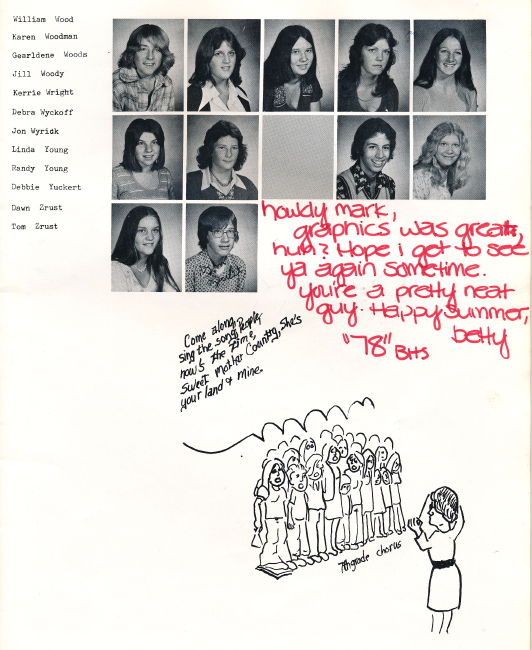 William Wood
Karen Woodman
Gearldene Woods
Jill Woody
Kerrie Wright
Debra Wyckoff
Jon Wyrick
Linda Young
Randy Young
Debbie Yuckert
Dawn Zrust
Tom Zrust
howdy mark,
graphics was great,
huh? Hope i get to see
ya again sometime.
you're a pretty neat
guy. Happy Summer,
betty
"78" BHS
Come along,
sing the song, People,
now's the time,
sweet mother Country, She's
your land & mine.
7th grade chorus